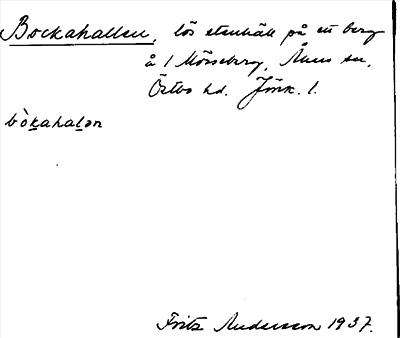 Bockahallen, lös stenhäll på ett berg
å 1 Mörseberg, Åmes sn,
Östbo hd. Jönk. l.
bòkahalən
Fritz Andersson 1937.